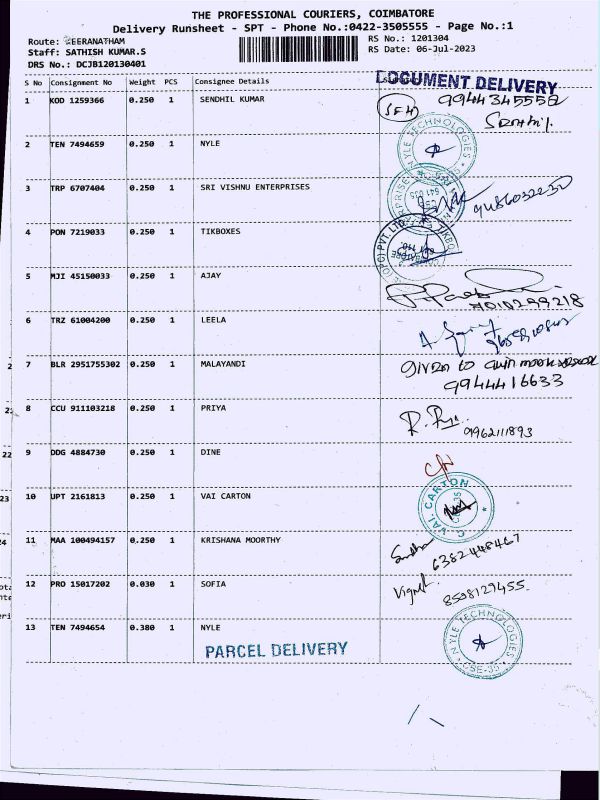 THE PROFESSIONAL COURIERS, COIMBATORE
Delivery Runsheet - SPT - Phone No.:0422-3505555 - Page No.:1
Route: KEERANATHAM
RS No.: 1201304
Staff: SATHISH KUMAR.S
RS Date: 06-Jul-2023
DRS No.: DCJB120130401
S No Consignment No Weight PCS Consignee Details
DOCUMENT DELIVERY
1 KOD 1259366 0.250 1 SENDHIL KUMAR
2 TEN 7494659 0.250 1 NYLE
NYLE TECHNOLOGIES
3 TRP 6707404 0.250 1 SRI VISHNU ENTERPRISES
4 PON 7219033 0.250 1 TIKBOXES
(OPC) PVT. LTD. TIKBO
5 MJI 45150033 0.250 1 AJAY
7010299218
6 TRZ 61004200 0.250 1 LEELA
7 BLR 2951755302 0.250 1 MALAYANDI
given to
9944416633
8 CCU 911103218 0.250 1 PRIYA
9962111893
9 DDG 4884730 0.250 1 DINE
10 UPT 2161813 0.250 1 VAI CARTON
VAI. CARTON
11 MAA 100494157 0.250 1 KRISHANA MOORTHY
6382448467
12 PRO 15017202 0.030 1 SOFIA
8508129455
13 TEN 7494654 0.380 1 NYLE
NYLE TECHNOLOGIES
CSE-35
PARCEL DELIVERY